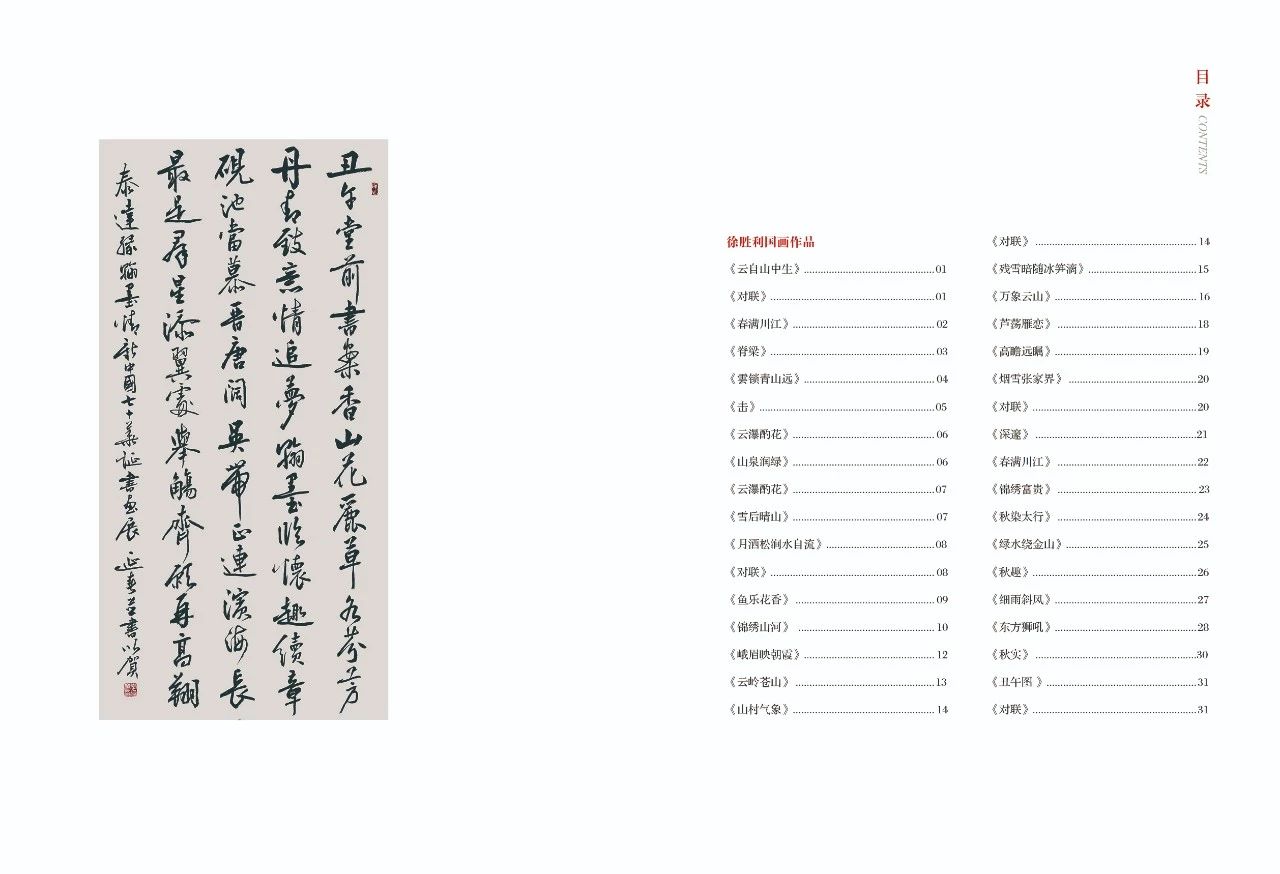 丑午堂前書案香山花麗草各芬芳
丹青致意情追夢翰墨臨懷趣續章
硯池當慕晋唐闊吴帶正連濱海長
最是群星添翼處舉觴齊願再高翔
泰達緣翰墨情新中國七十華誕書画展 延春并書以贺
目录
CONTENTS
徐胜利国画作品
《云自山中生》............01
《对联》............01
《春满川江》............02
《脊梁》............03
《雲锁青山远》............04
《击》............05
《云瀑酌花》............06
《山泉润绿》............06
《云瀑酌花》............07
《雪后晴山》............07
《月洒松涧水自流》............08
《对联》............08
《鱼乐花香》............09
《锦绣山河》............10
《峨眉映朝霞》............12
《云岭苍山》............13
《山村气象》............14
《对联》............14
《残雪暗随冰笋滴》............15
《万象云山》............16
《芦荡雁恋》............18
《高瞻远瞩》............19
《烟雪张家界》............20
《对联》............20
《深邃》............21
《春满川江》............22
《锦绣富贵》............23
《秋染太行》............24
《绿水绕金山》............25
《秋趣》............26
《细雨斜风》............27
《东方狮吼》............28
《秋实》............30
《丑午图》............31
《对联》............31